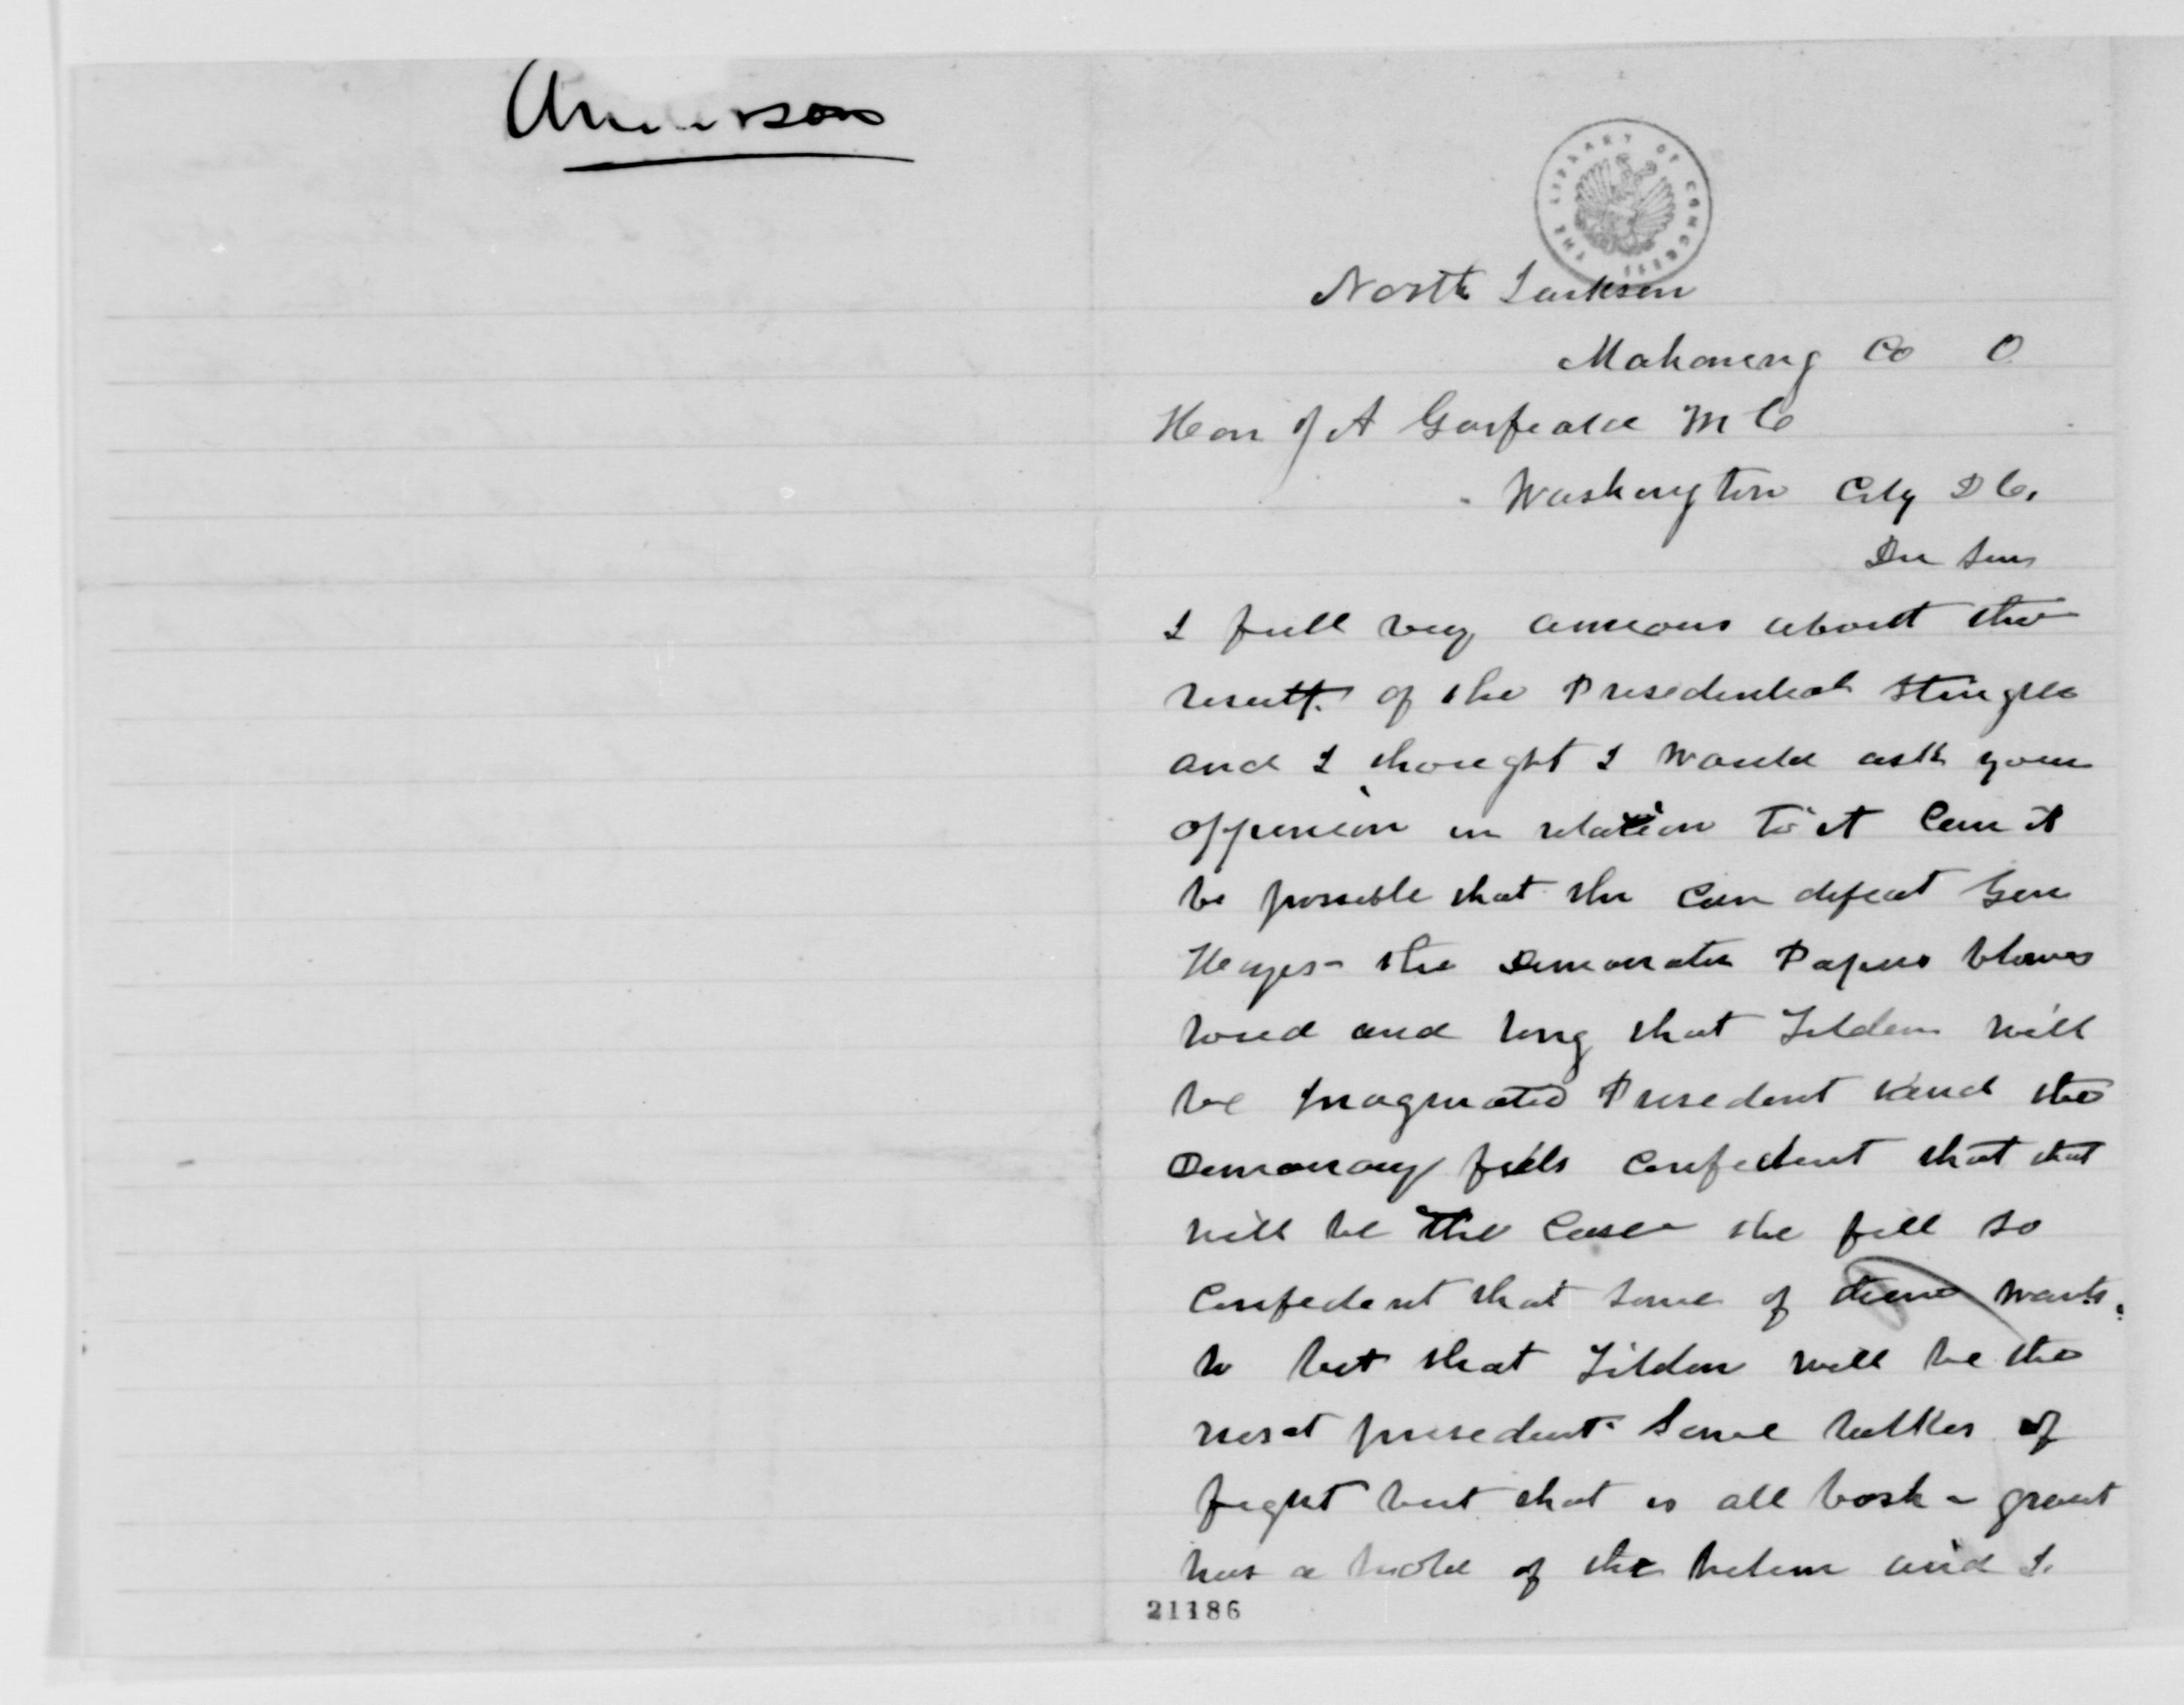 Anderson
THE LIBRARY OF CONGRESS
North Jackson
Mahoning Co O
Hon J A Garfeald M C
Washington City D C.
Der Sur
I fell very ancious about the
result of the Presedential Strugle
and I thought I would ask your
oppinion in relation to it Can it
be possible that the can defeat Gen
Hayes - the Democratic Papers blows
loud and long that Tilden will
be Inagurated President and the
Democracy feels confedent that that
will be the Case - the fell so
Confedent that some of them wants
to bet that Tilden will be the
next presedent Some talkes of
fight but that is all bosh - grant
has a hold of the helem and I
21186